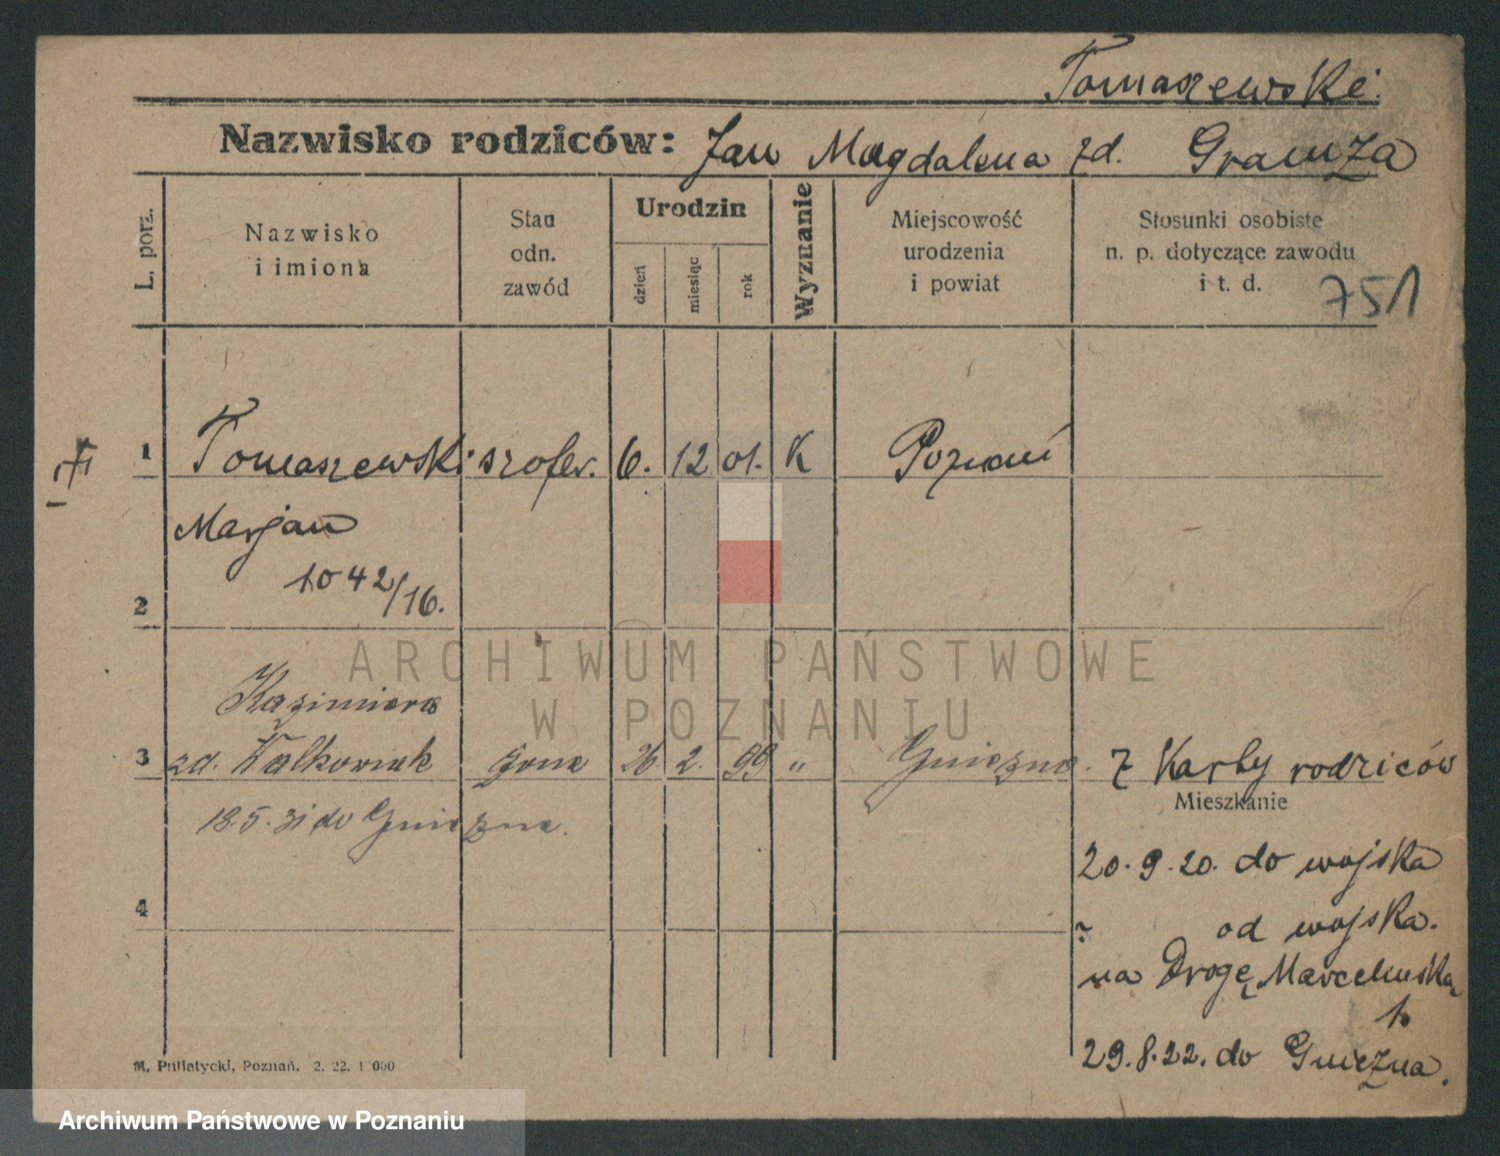 Tomaszewski.
Nazwisko rodziców: Jan Magdalena zd. Gramza
L. porz.
Nazwisko
i imiona
Stan
odn.
zawód
Urodzin
dzień
miesiąc
rok
Wyznanie
Miejscowość
urodzenia
i powiat
Stosunki osobiste
n. p. dotyczące zawodu
i t. d.
751
1 Tomaszewski szofer. 6. 12 01. K Poznań
Marjan
1042/16.
2
ARCHIWUM PAŃSTWOWE
W POZNANIU
Kazimiera
3 zd. Walkowiak żona 26 2. 99 " Gniezno. Z Karby rodziców
Mieszkanie
18.5.31 do Gniezna.
20.9.20. do wojska
4
? od wojska.
na Drogę Marcelińską
1.
29.8.22. do Gniezna.
M. Putiatycki, Poznań. 2. 22. 1 000
Archiwum Państwowe w Poznaniu